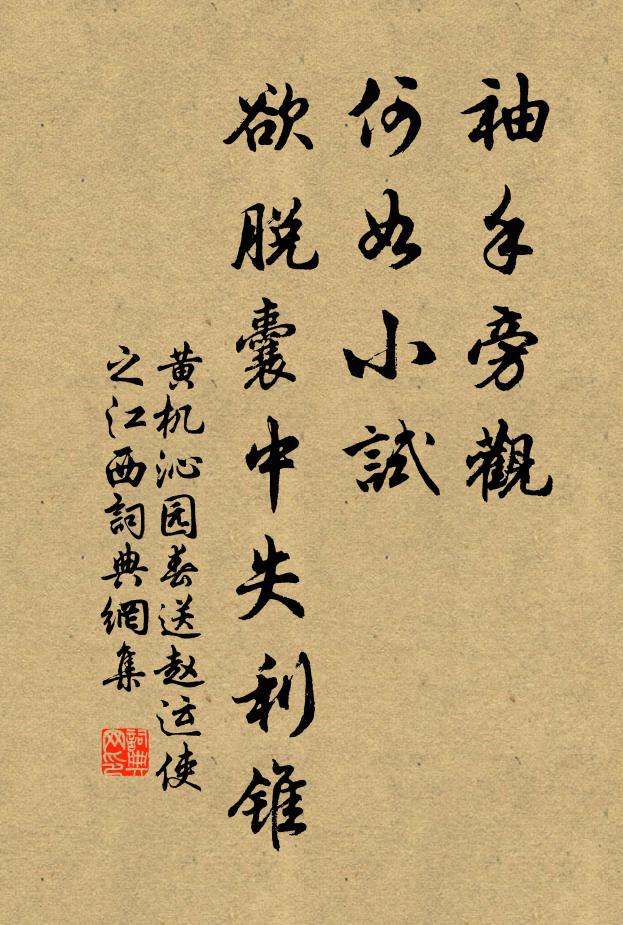 袖手旁觀
何如小試
欲脫囊中失利錐
黄机沁园春送赵运使
之江西詞典網集
詞典網印